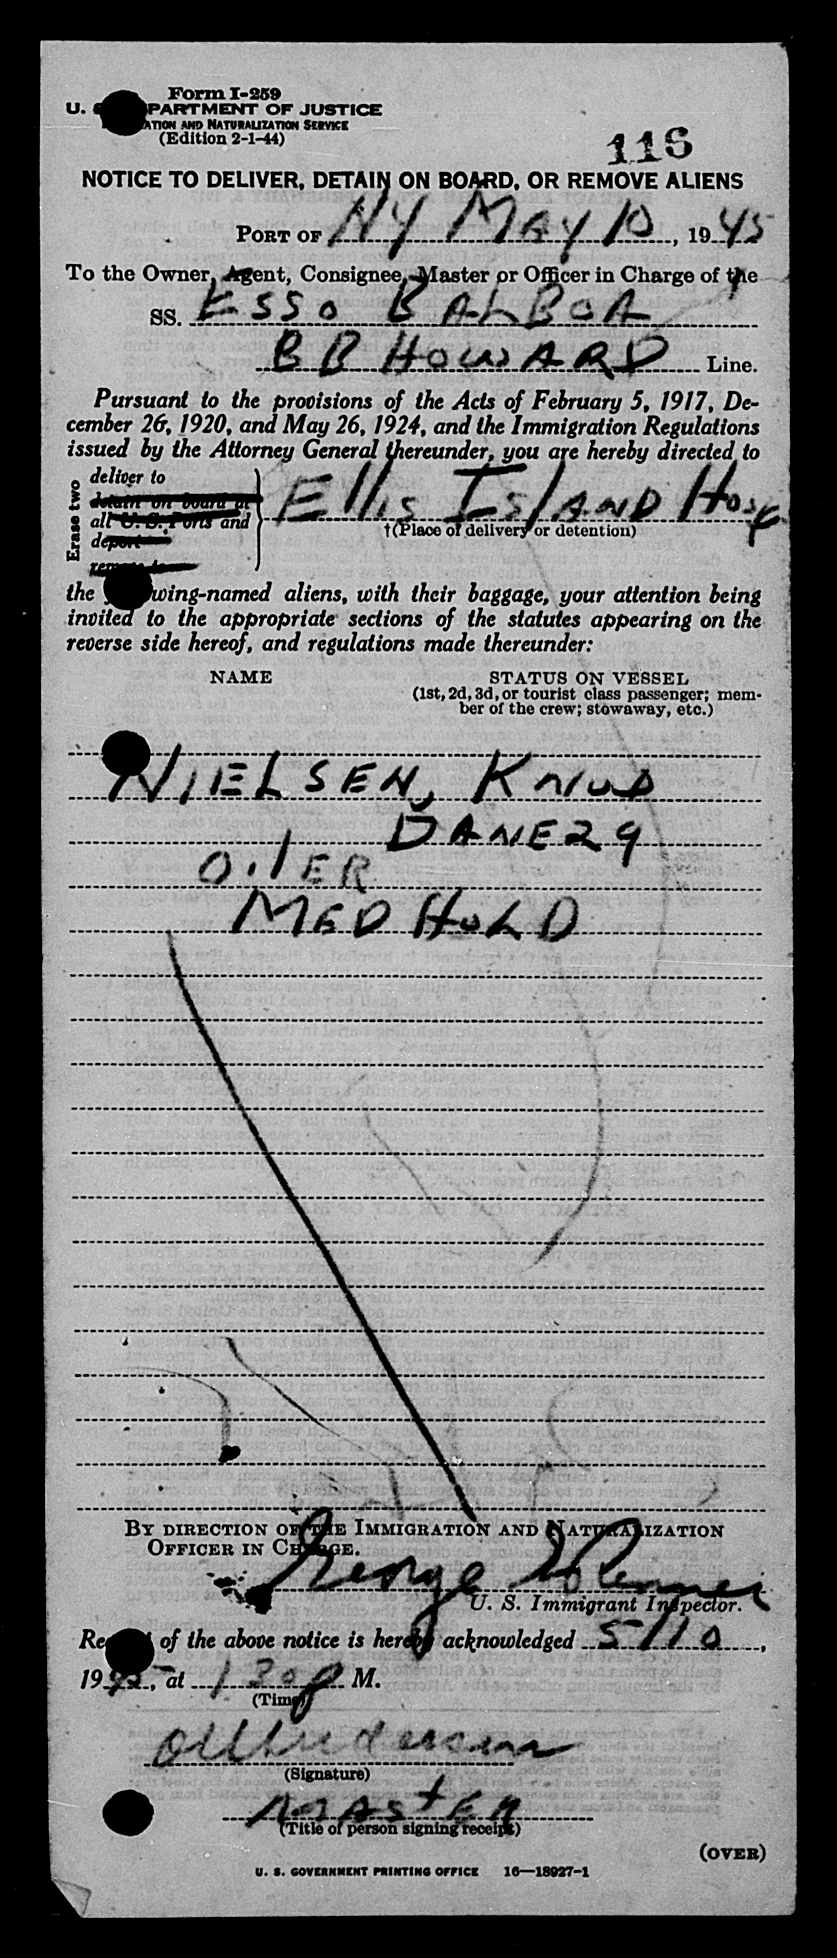 Form I-259
U. S. DEPARTMENT OF JUSTICE
IMMIGRATION AND NATURALIZATION SERVICE
(Edition 2-1-44)
116
NOTICE TO DELIVER, DETAIN ON BOARD, OR REMOVE ALIENS
PORT OF NY MAY 10, 1945
To the Owner, Agent, Consignee, Master or Officer in Charge of the
SS. ESSO BALBOA
BB HOWARD Line.
Pursuant to the provisions of the Acts of February 5, 1917, De-
cember 26, 1920, and May 26, 1924, and the Immigration Regulations
issued by the Attorney General thereunder, you are hereby directed to
Erase two
deliver to
detain on board at
all U. S. Ports and
deport
remove to
Ellis ISLAND Hosp
†(Place of delivery or detention)
the following-named aliens, with their baggage, your attention being
invited to the appropriate sections of the statutes appearing on the
reverse side hereof, and regulations made thereunder:
NAME STATUS ON VESSEL
(1st, 2d, 3d, or tourist class passenger; mem-
ber of the crew; stowaway, etc.)
NIELSEN, KNUD
DANE 29
OilER
MED HOLD
BY DIRECTION OF THE IMMIGRATION AND NATURALIZATION
OFFICER IN CHARGE.
George
U. S. Immigrant Inspector.
Receipt of the above notice is hereby acknowledged 5/10,
1945, at 1 30 p M.
(Time)
Anderson
(Signature)
MASTER
(Title of person signing receipt)
(OVER)
U. S. GOVERNMENT PRINTING OFFICE 16—18927-1